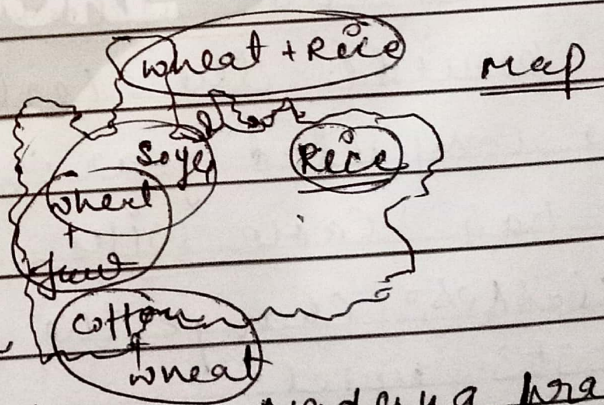 wheat + Rice
Map
Soya
Rice
wheat
+
Juw
cotton
+
wheat